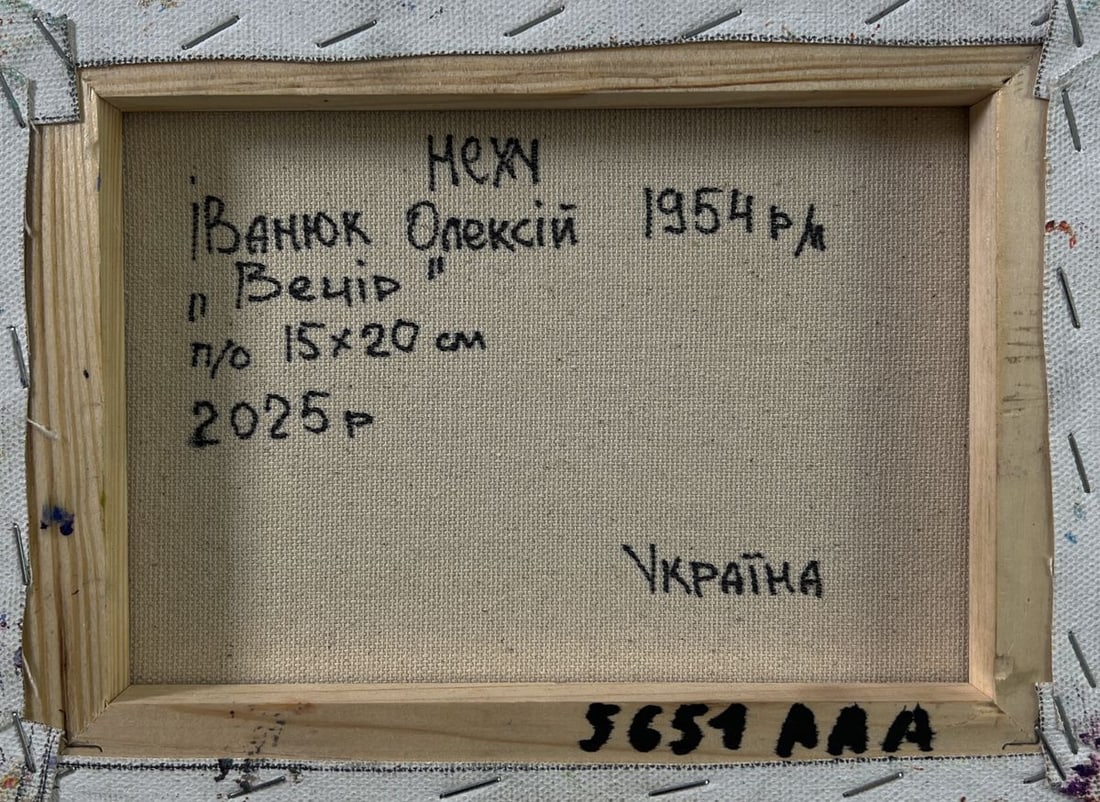 НСХУ
Іванюк Олексій 1954 р/н
„Вечір"
п/о 15×20 см
2025 р
Україна
5651 AAA